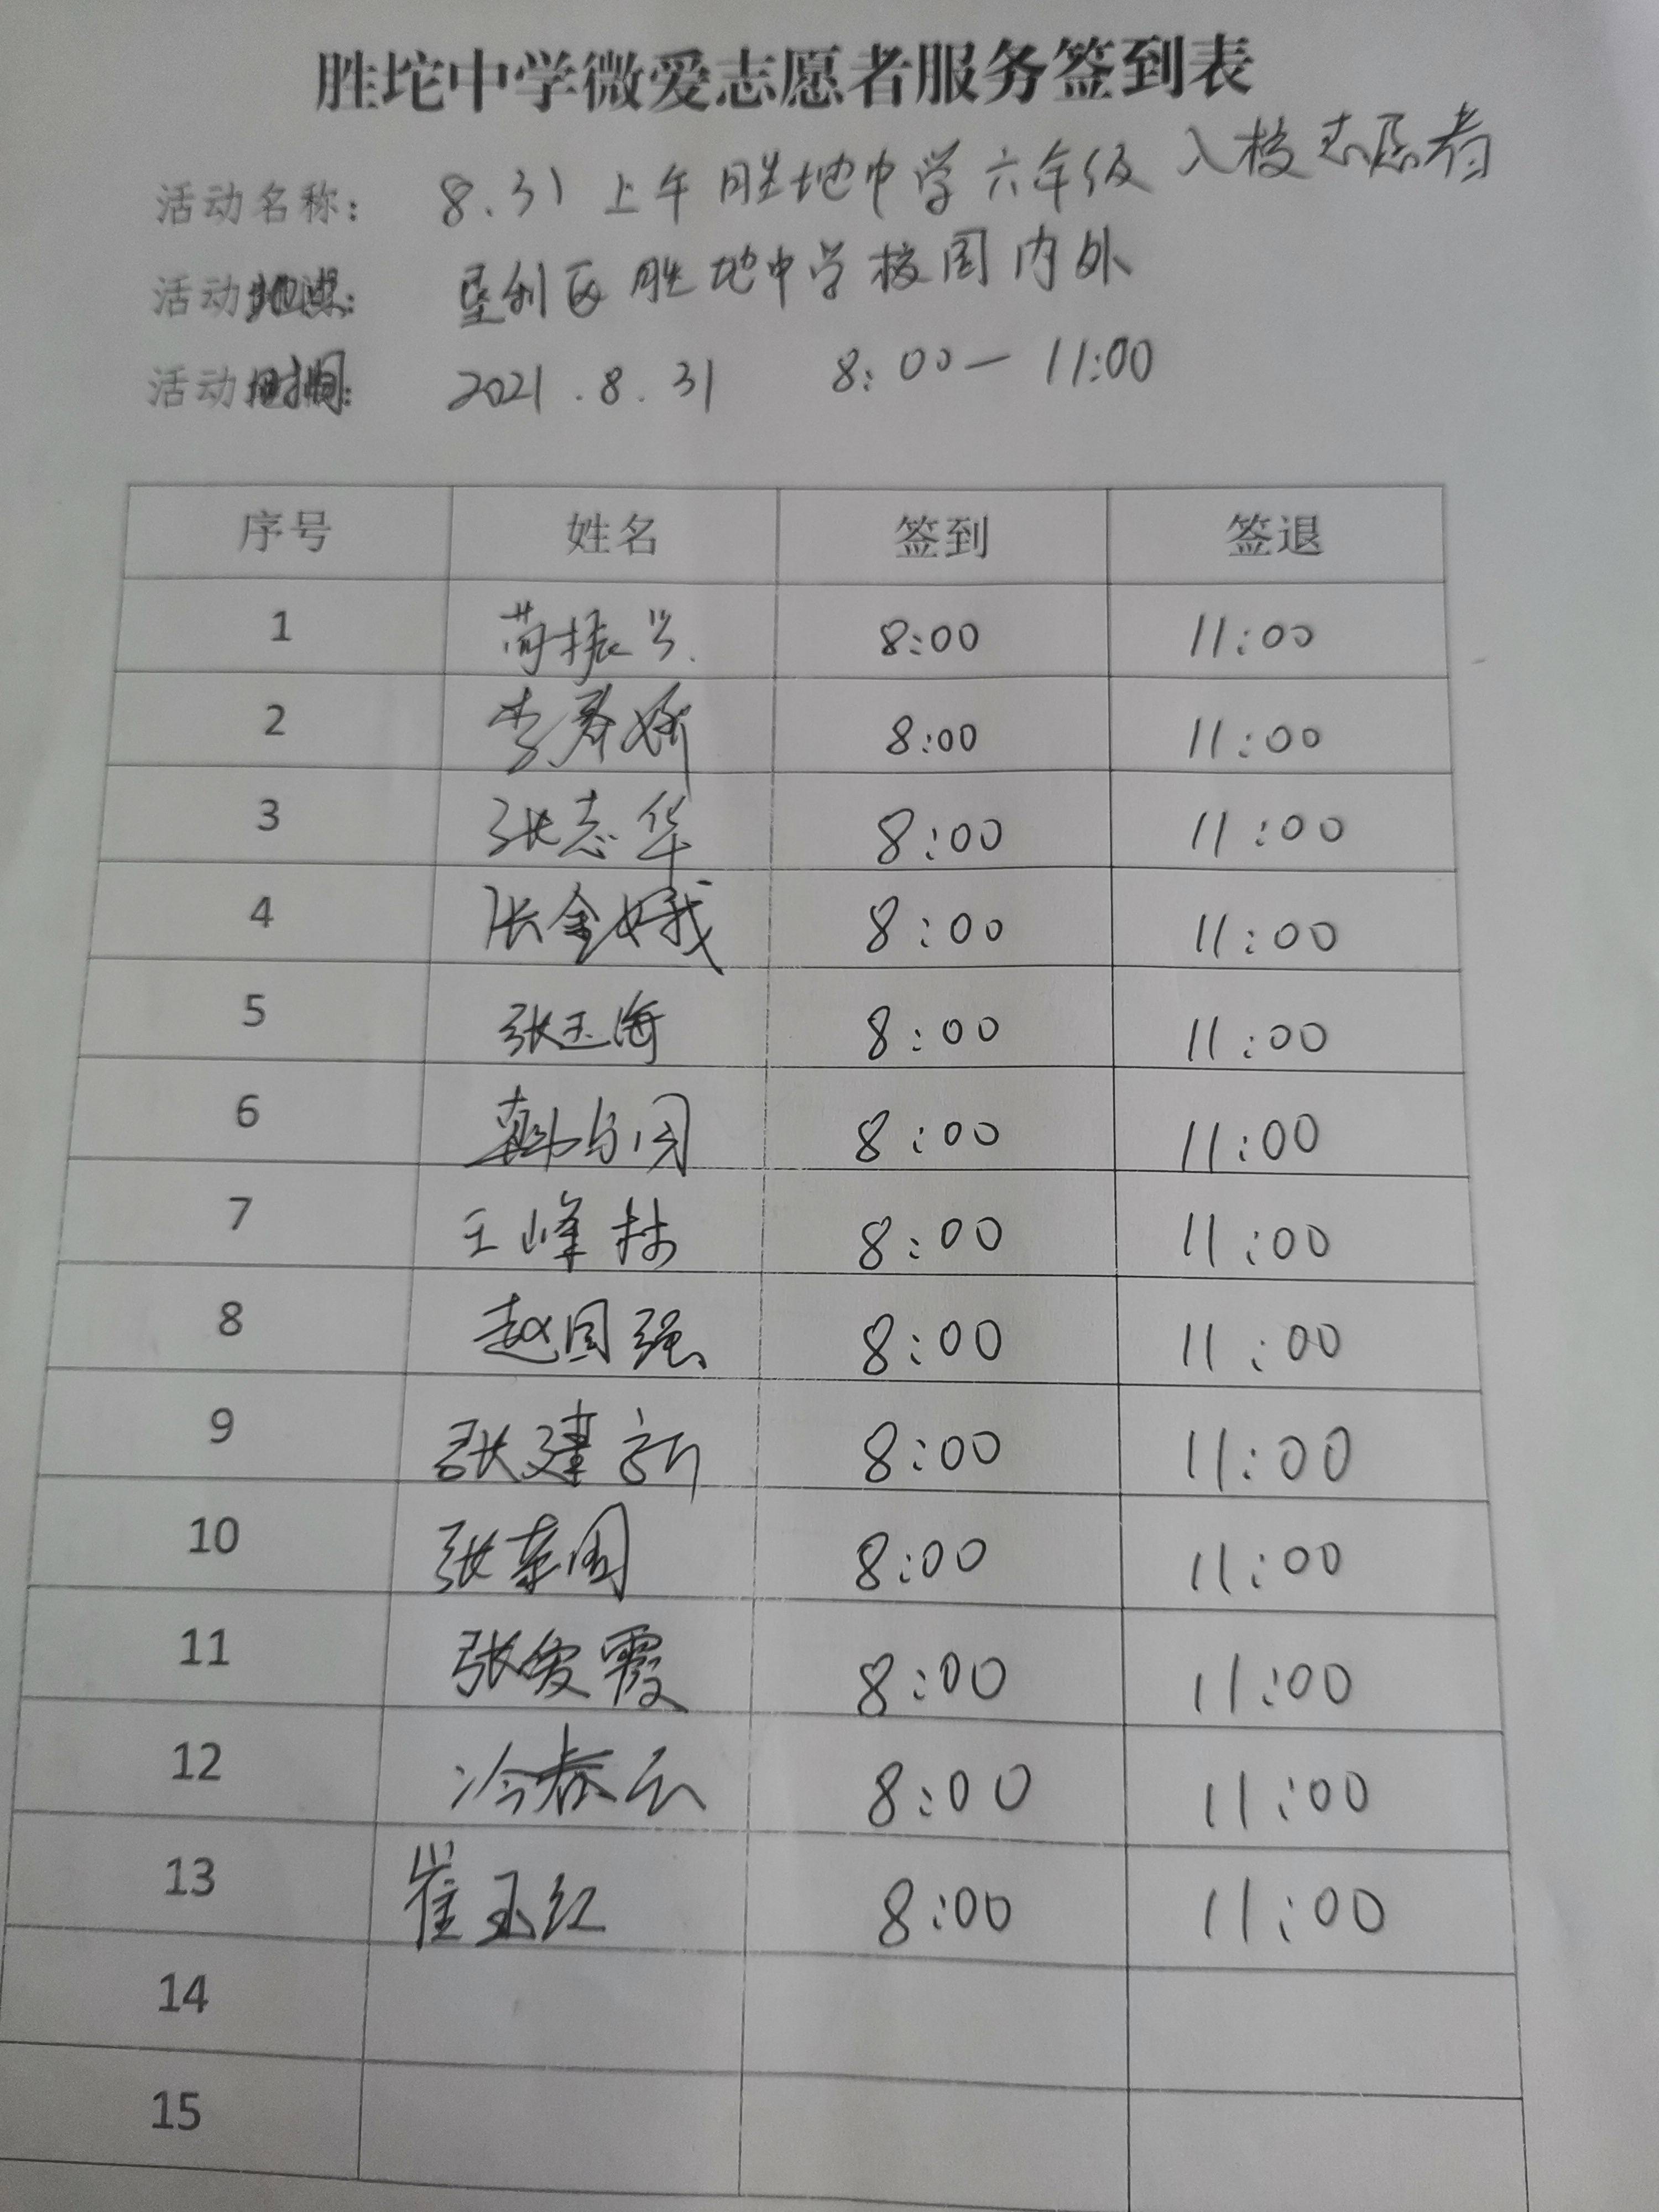 胜坨中学微爱志愿者服务签到表
活动名称: 8.31上午胜坨中学六年级入校志愿者
活动地点: 垦利区胜坨中学校园内外
活动时间: 2021.8.31 8:00—11:00
序号 姓名 签到 签退
1 苟振兴 8:00 11:00
2 李春娇 8:00 11:00
3 张志华 8:00 11:00
4 张金娥 8:00 11:00
5 张玉海 8:00 11:00
6 8:00 11:00
7 王峰林 8:00 11:00
8 赵国强 8:00 11:00
9 张建新 8:00 11:00
10 张荣国 8:00 11:00
11 张爱霞 8:00 11:00
12 冷春云 8:00 11:00
13 崔玉红 8:00 11:00
14
15